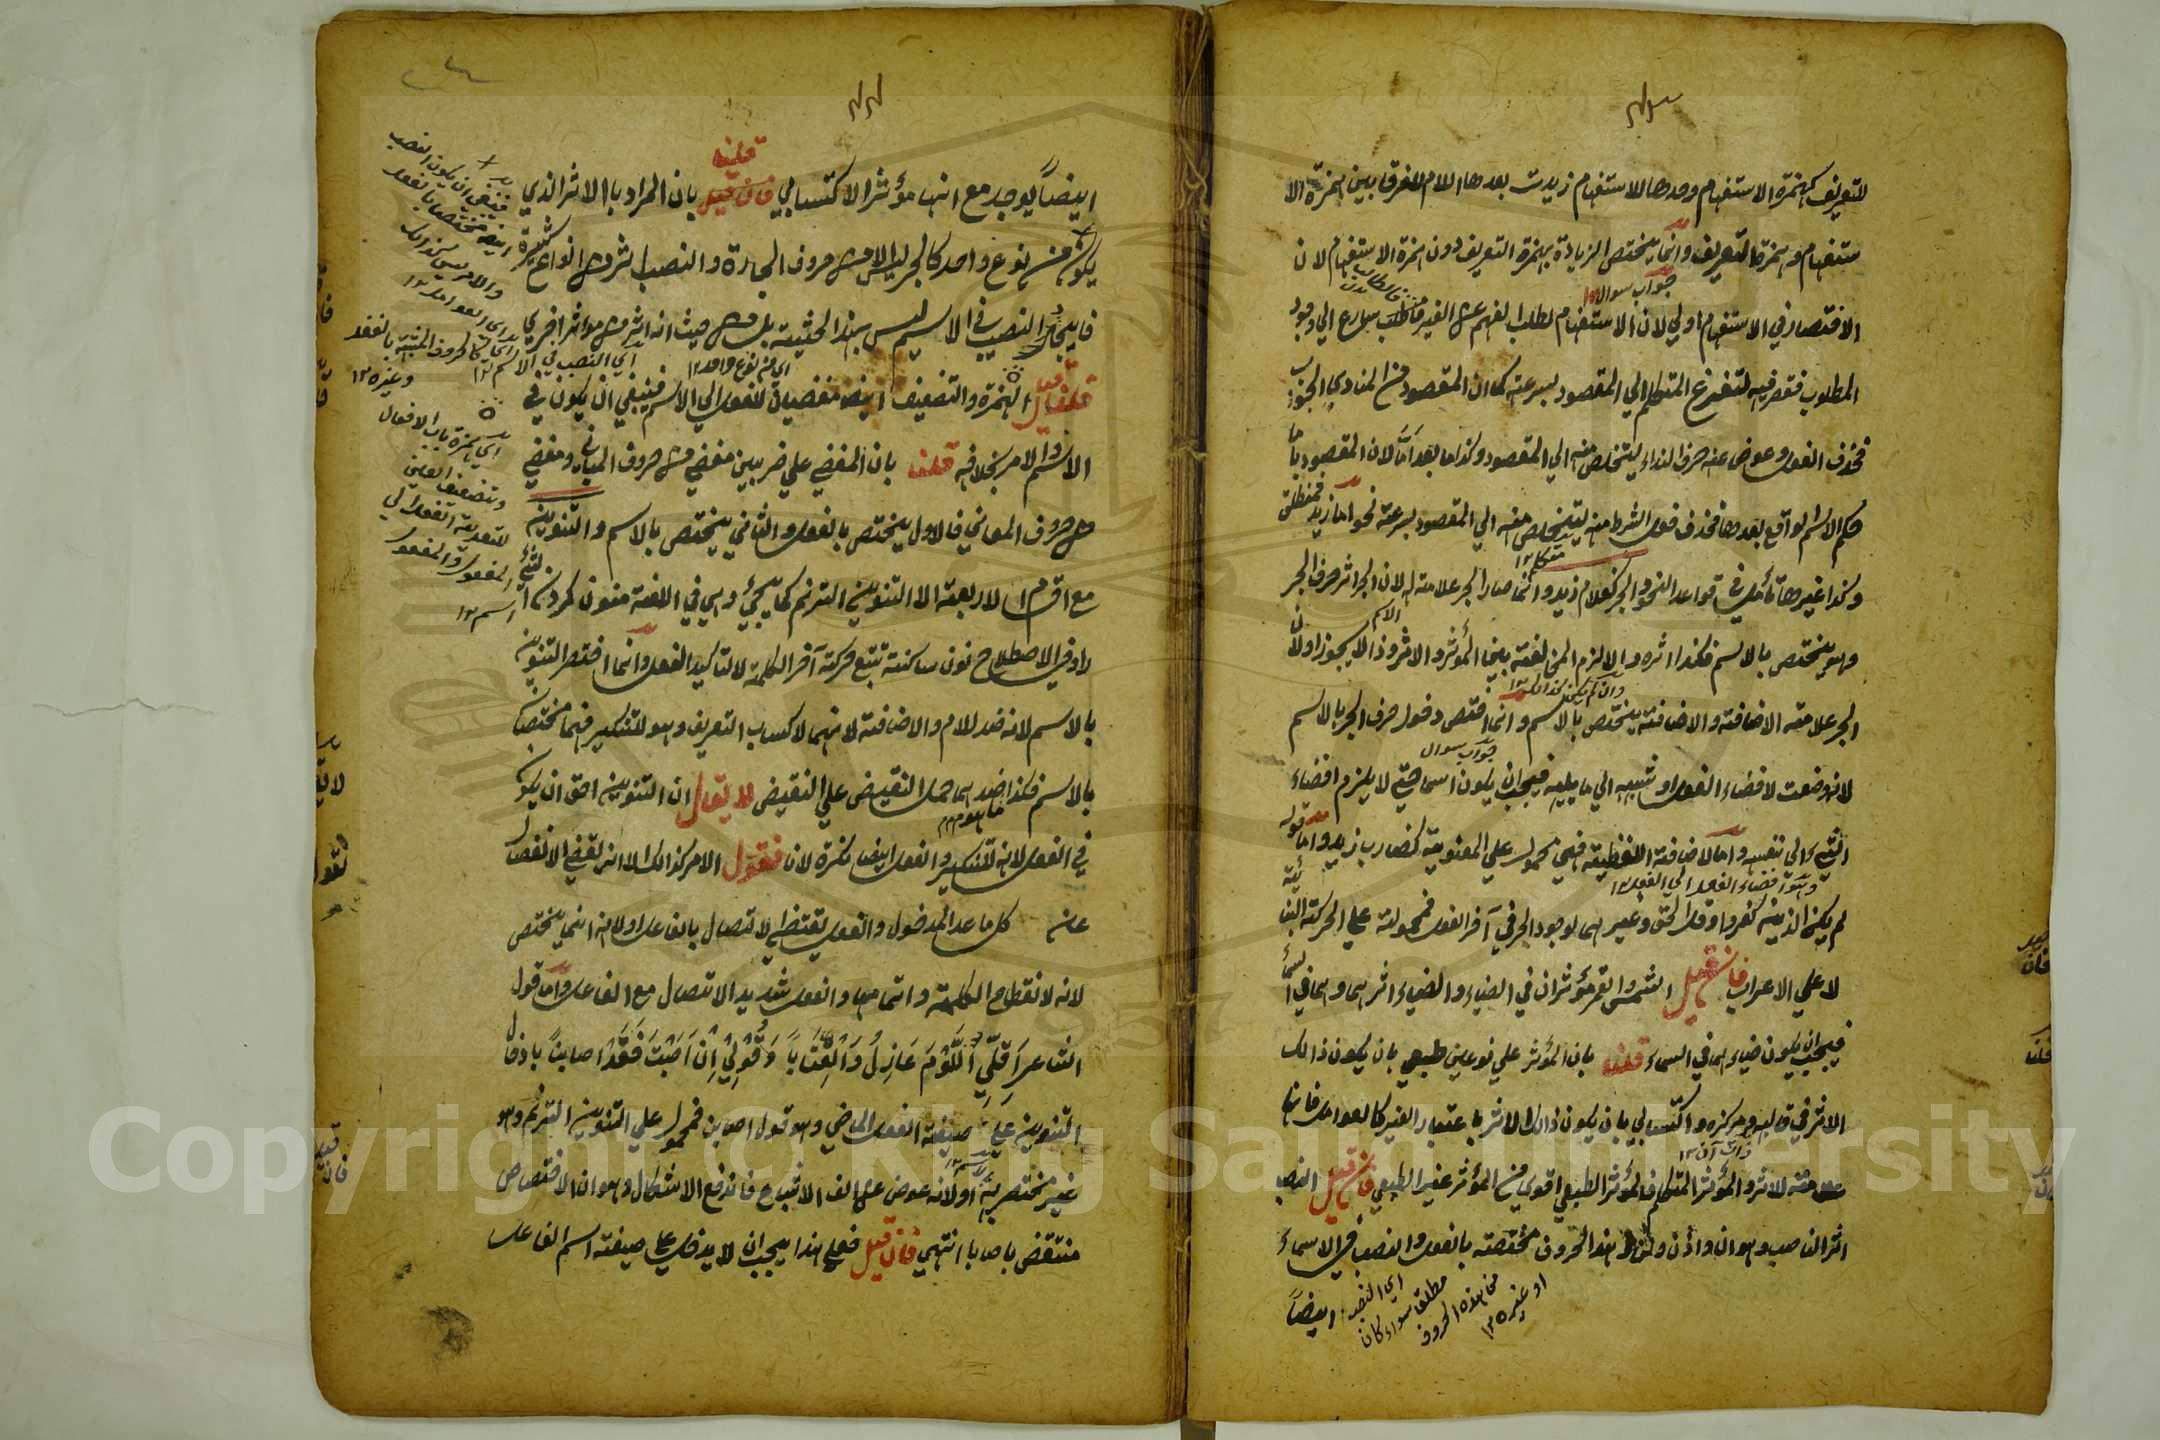 للتعريف كهمزة الاستفهام وحدها للاستفهام زيدت بعدها اللام للفرق بين همزة الا
ستفهام وهمزة التعريف وانما يختص الزيادة بهمزة التعريف دون همزة الاستفهام لان
جواب سوال
الاختصار في الاستفهام اولي لان الاستفهام لطلب الفهم عن الغير فالطالب يسارع الي وجود
المطلوب فقصر فيه لتفرغ المتكلم الي المقصود بسرعة كما ان المقصود من المنادي
فحذف الفعل وعوض عنه حرف النداء ليتخلص منه الي المقصود وكذا ما بعد اَمَّا لان المقصود بها
حكم الاسم الواقع بعدها فحذف فعل الشرط منه ليتخلص منه الي المقصود بسرعة نحو اما زيد فمنطلق
وكذا غيرها تأمل في قواعد النحو والجر كغلام زيد وانما صار الجر علامة له لان الجر اثر حرف الجر
وهو يختص بالاسم فكذا اثره والا لزم المخالفة بين المؤثر والاثر وذا لا يجوز اولان
وان لم يكن كذالك
الجر علامة الاضافة والاضافة يختص بالاسم وانما اختص دخول حرف الجر بالاسم
جواب سوال
لانه وضعت لافضاء الفعل او شبهه الي ما يليه فيجب ان يكون اسما حتي لا يلزم افضاء
الشيء الي نفسه واما الاضافة اللفظية فهي محمولة علي المعنوية كضارب زيد واما قوله
وهو افضاء الفعل الي الفعل ١٢
لم يكن الذين كفروا وقل الحق وغيرهما لوجود الجر في آخر الفعل فمحمولة علي الحركة البنائية
لا علي الاعراب فان قيل الشمس والقمر مؤثران في الضياء والضياء اثرهما وهما في السماء
فيجب ان يكون ضياءهما في السماء قلنا بان المؤثر علي نوعين طبعي بان يكون ذالك
الاثر في قالبه ومركزه واكتسابي بان يكون ذالك الاثر باعتبار الغير كالعوامل فانها
علامة للاثر والمؤثر المتكلم فالمؤثر الطبعي اقوي من المؤثر غير الطبعي فان قيل النصب
اثر الناصب وهو ان واذن ولن هذه الحروف مختصة بالفعل والنصب في الاسماء
ايضاً
اي النصب
مطلق سواء كان
من هذه الحروف
او غيره ١٢
ايضاً يوجد مع انها مؤثر الاكتسابي فان قيل قلنا بان المراد باالاثر الذي
يكون من نوع واحد كالجر ليس الا من حروف الجارة والنصب اثر من انواع كثيرة
فايجاد النصب في الاسم ليس بهذا الحيثية بل من حيث انه اثر من مواثر اخري
اي من نوع واحد ١٢
اي النصب في الاسم ١٢
الهمزة والتضعيف ايضا مفضيان للفعل الي الاسم فينبغي ان يكون في
الاسم والامر بخلافه قلنا بان المفضي علي ضربين مفضي من حروف المباني ومفضي
من حروف المعاني فالاول يختص بالفعل والثاني يختص بالاسم والتنوين
مع اقسام الاربعة الا التنوين الترنم كما يجئ وهي في اللغة
وفي الاصطلاح نون ساكنة تتبع حركة آخر الكلمة لا لتاكيد الفعل وانما اختص التنوين
بالاسم لانه ضد اللام والاضافة لانهما لاكساب التعريف وهو للتنكير فهما مختصان
بالاسم فكذا ضدهما حمل النقيض علي النقيض لا يقال ان التنوين احق ان يكون
في الفعل لانه للتنكير والفعل ايضا نكرة لان فنقول الامر كذالك الا انه يقتضي الانفصال
عن كل ما عدا المدخول والفعل يقتضي الاتصال بالفاعل اولانه انما يختص
لانه لانقطاع الكلمة واتمامها والفعل شديد الاتصال مع الفاعل واما قول
الشاعر اَقِلّي اللَّوْمَ عَاذِلَ وَالْعِتَابَاً وَقُوْلِيْ اِنْ اَصَبْتَ فَقَدْ اصابناً بادخال
التنوين علي صيغة الفعل الماضي وهو قوله اصابن فمحمول علي التنوين الترنم وهو
غير مختص به اولانه عوض عن الف الاشباع فاندفع الاشكال وهو ان الاختصاص
منتقض باصابا انتهي فان قيل فعلي هذا يجب ان لا يدخل علي صيغة اسم الفاعل
فينبغي ان يكون النصب
ايضا مختصا بالفعل
والامر ليس كذالك
وغيره ١٢
اي همزة باب الافعال
وتضعيف العين
لتعدية الفعل الي
المفعول والمفعول
اسم ١٢